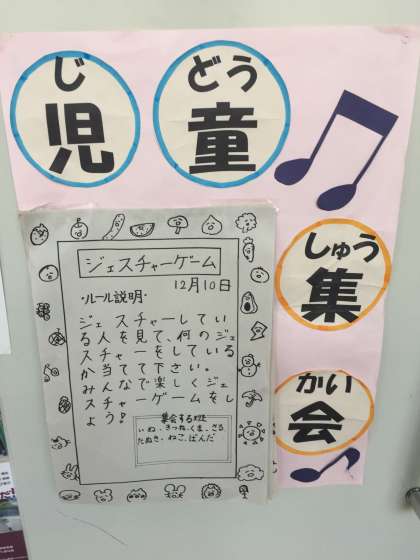 じ どう
児 童
しゅう
集
かい
会
ジェスチャーゲーム
12月10日
・ルール説明・
ジェスチャーしてい
る人を見て、何のジェ
スチャーをしている
か当てて下さい。
みんなで楽しくジェ
スチャーゲームをし
ょう!
いぬ・きつね・くま・さる
たぬき・ねこ・ぱんだ